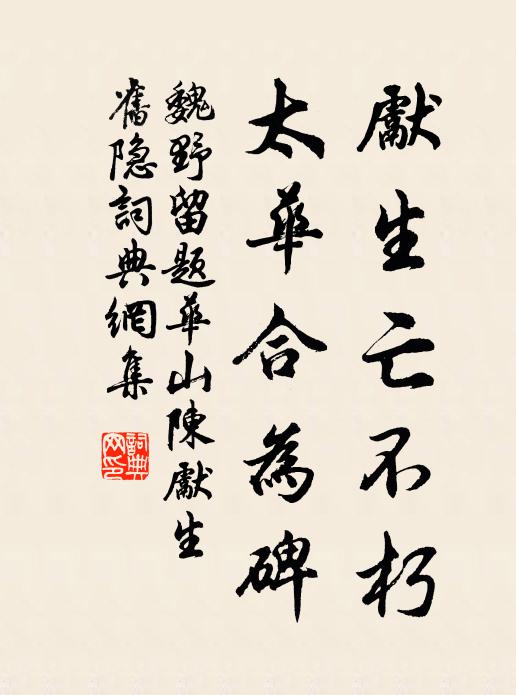 獻生亡不朽
太華合為碑
魏野留題華山陳獻生
舊隐詞典網集
詞典网印